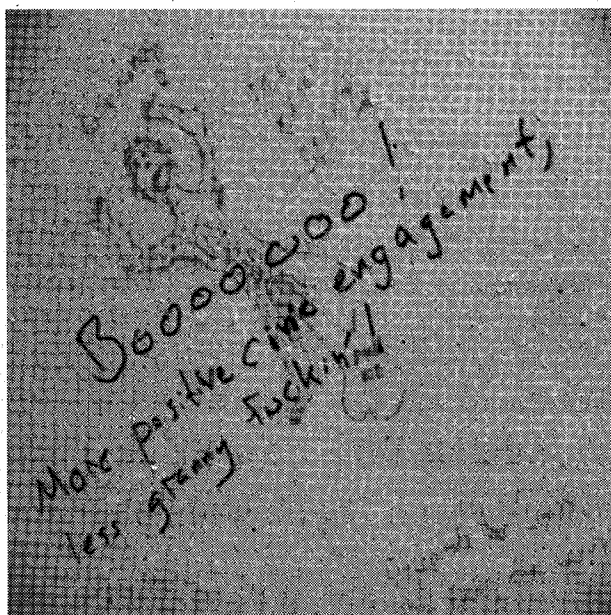 Booooooo!
More positive civic engagement,
less granny fuckin!